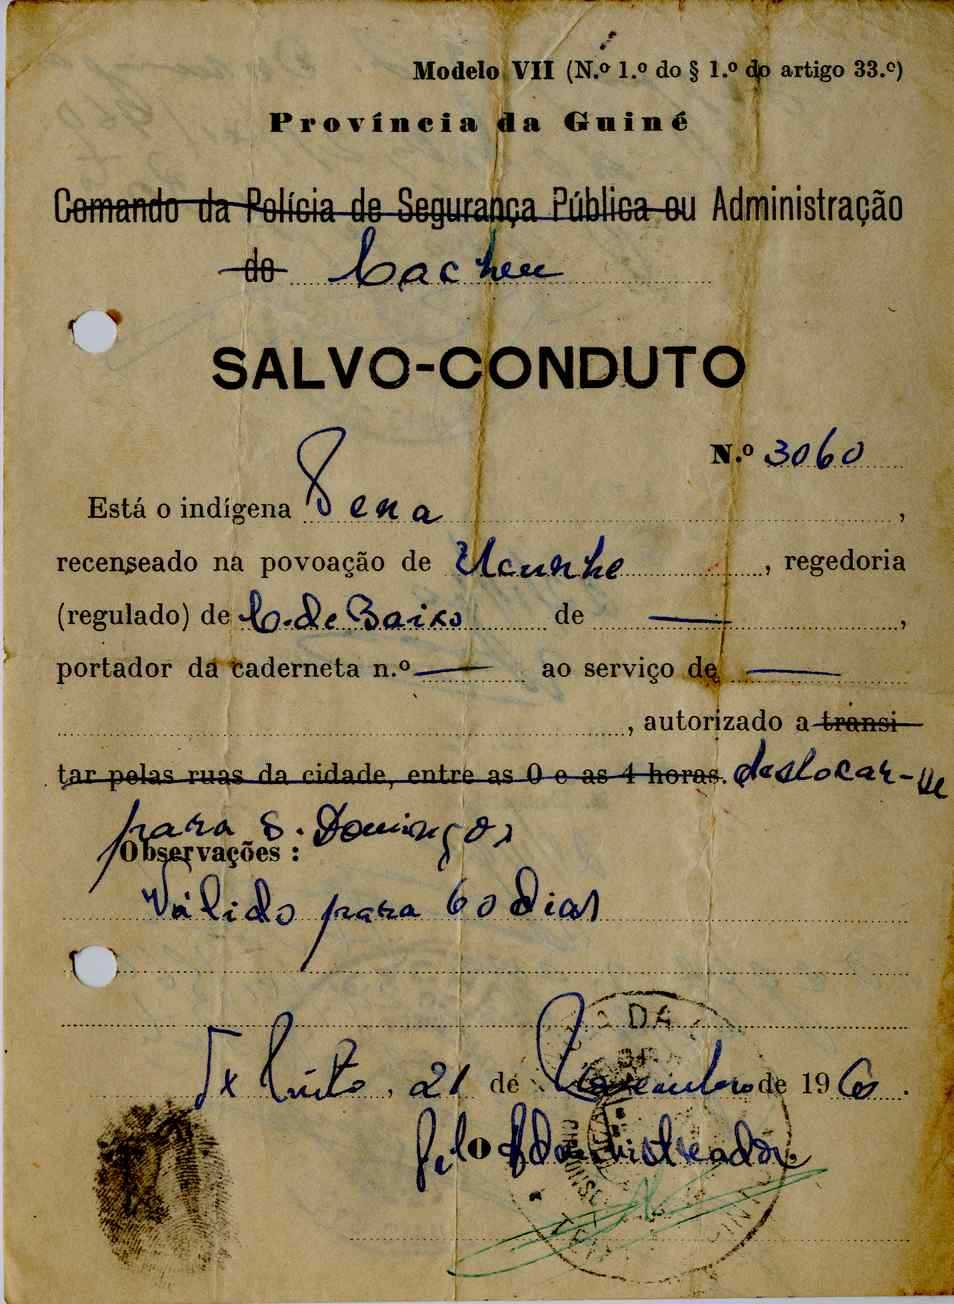 Modelo VII (N.º 1.º do § 1.º do artigo 33.º)
Província da Guiné
Comando da Polícia de Segurança Pública ou Administração
do Cacheu
SALVO-CONDUTO
N.º 3060
Está o indígena Pena,
recenseado na povoação de Ucunhe, regedoria
(regulado) de C. de Baixo de —,
portador da caderneta n.º — ao serviço de —
, autorizado a transi-
tar pelas ruas da cidade, entre as 0 e as 4 horas. deslocar-se
para S. Domingos
Observações:
Válido para 60 dias
Tx Pinto, 21 de Novembro de 1960.
Pelo Administrador
DA